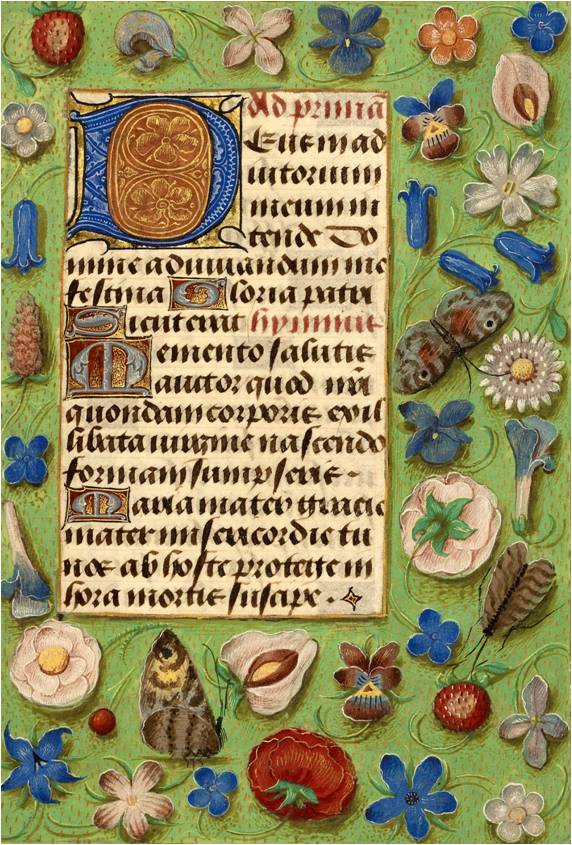 Ad primā
Deus in ad
iutorium
meum in
tende Do
mine ad iuuandum me
festina Gloria patri
Sicut erat hymnus
Memento salutis
auctor quod nr̄i
quondam corporis ex il
libata uirgine nascendo
formam sumpseris .
Maria mater gracie
mater misericordie tu
nos ab hoste protege in
hora mortis suscipe .